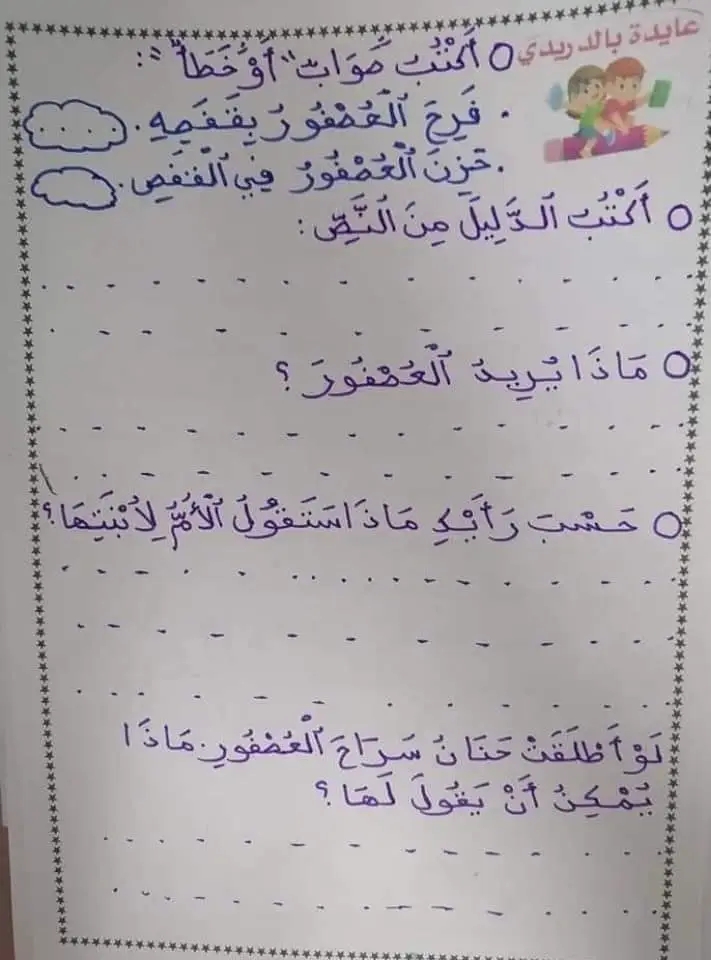 عايدة بالدريدي
أَكْتُبُ صَوَابٌ "أَوْ خَطَأٌ":
. فَرِحَ ٱلْعُصْفُورُ بِقَفَصِهِ.
. حَزِنَ ٱلْعُصْفُورُ فِي ٱلْقَفَصِ.
أَكْتُبُ ٱلدَّلِيلَ مِنَ ٱلنَّصِّ:
مَاذَا يُرِيدُ ٱلْعُصْفُورَ؟
حَسْبَ رَأْيِكِ مَاذَا سَتَقُولُ ٱلْأُمُّ لِاُبْنَتِهَا؟
لَوْ أَطْلَقَتْ حَنَانُ سَرَاحَ ٱلْعُصْفُورِ. مَاذَا
يُمْكِنُ أَنْ يَقُولَ لَهَا؟